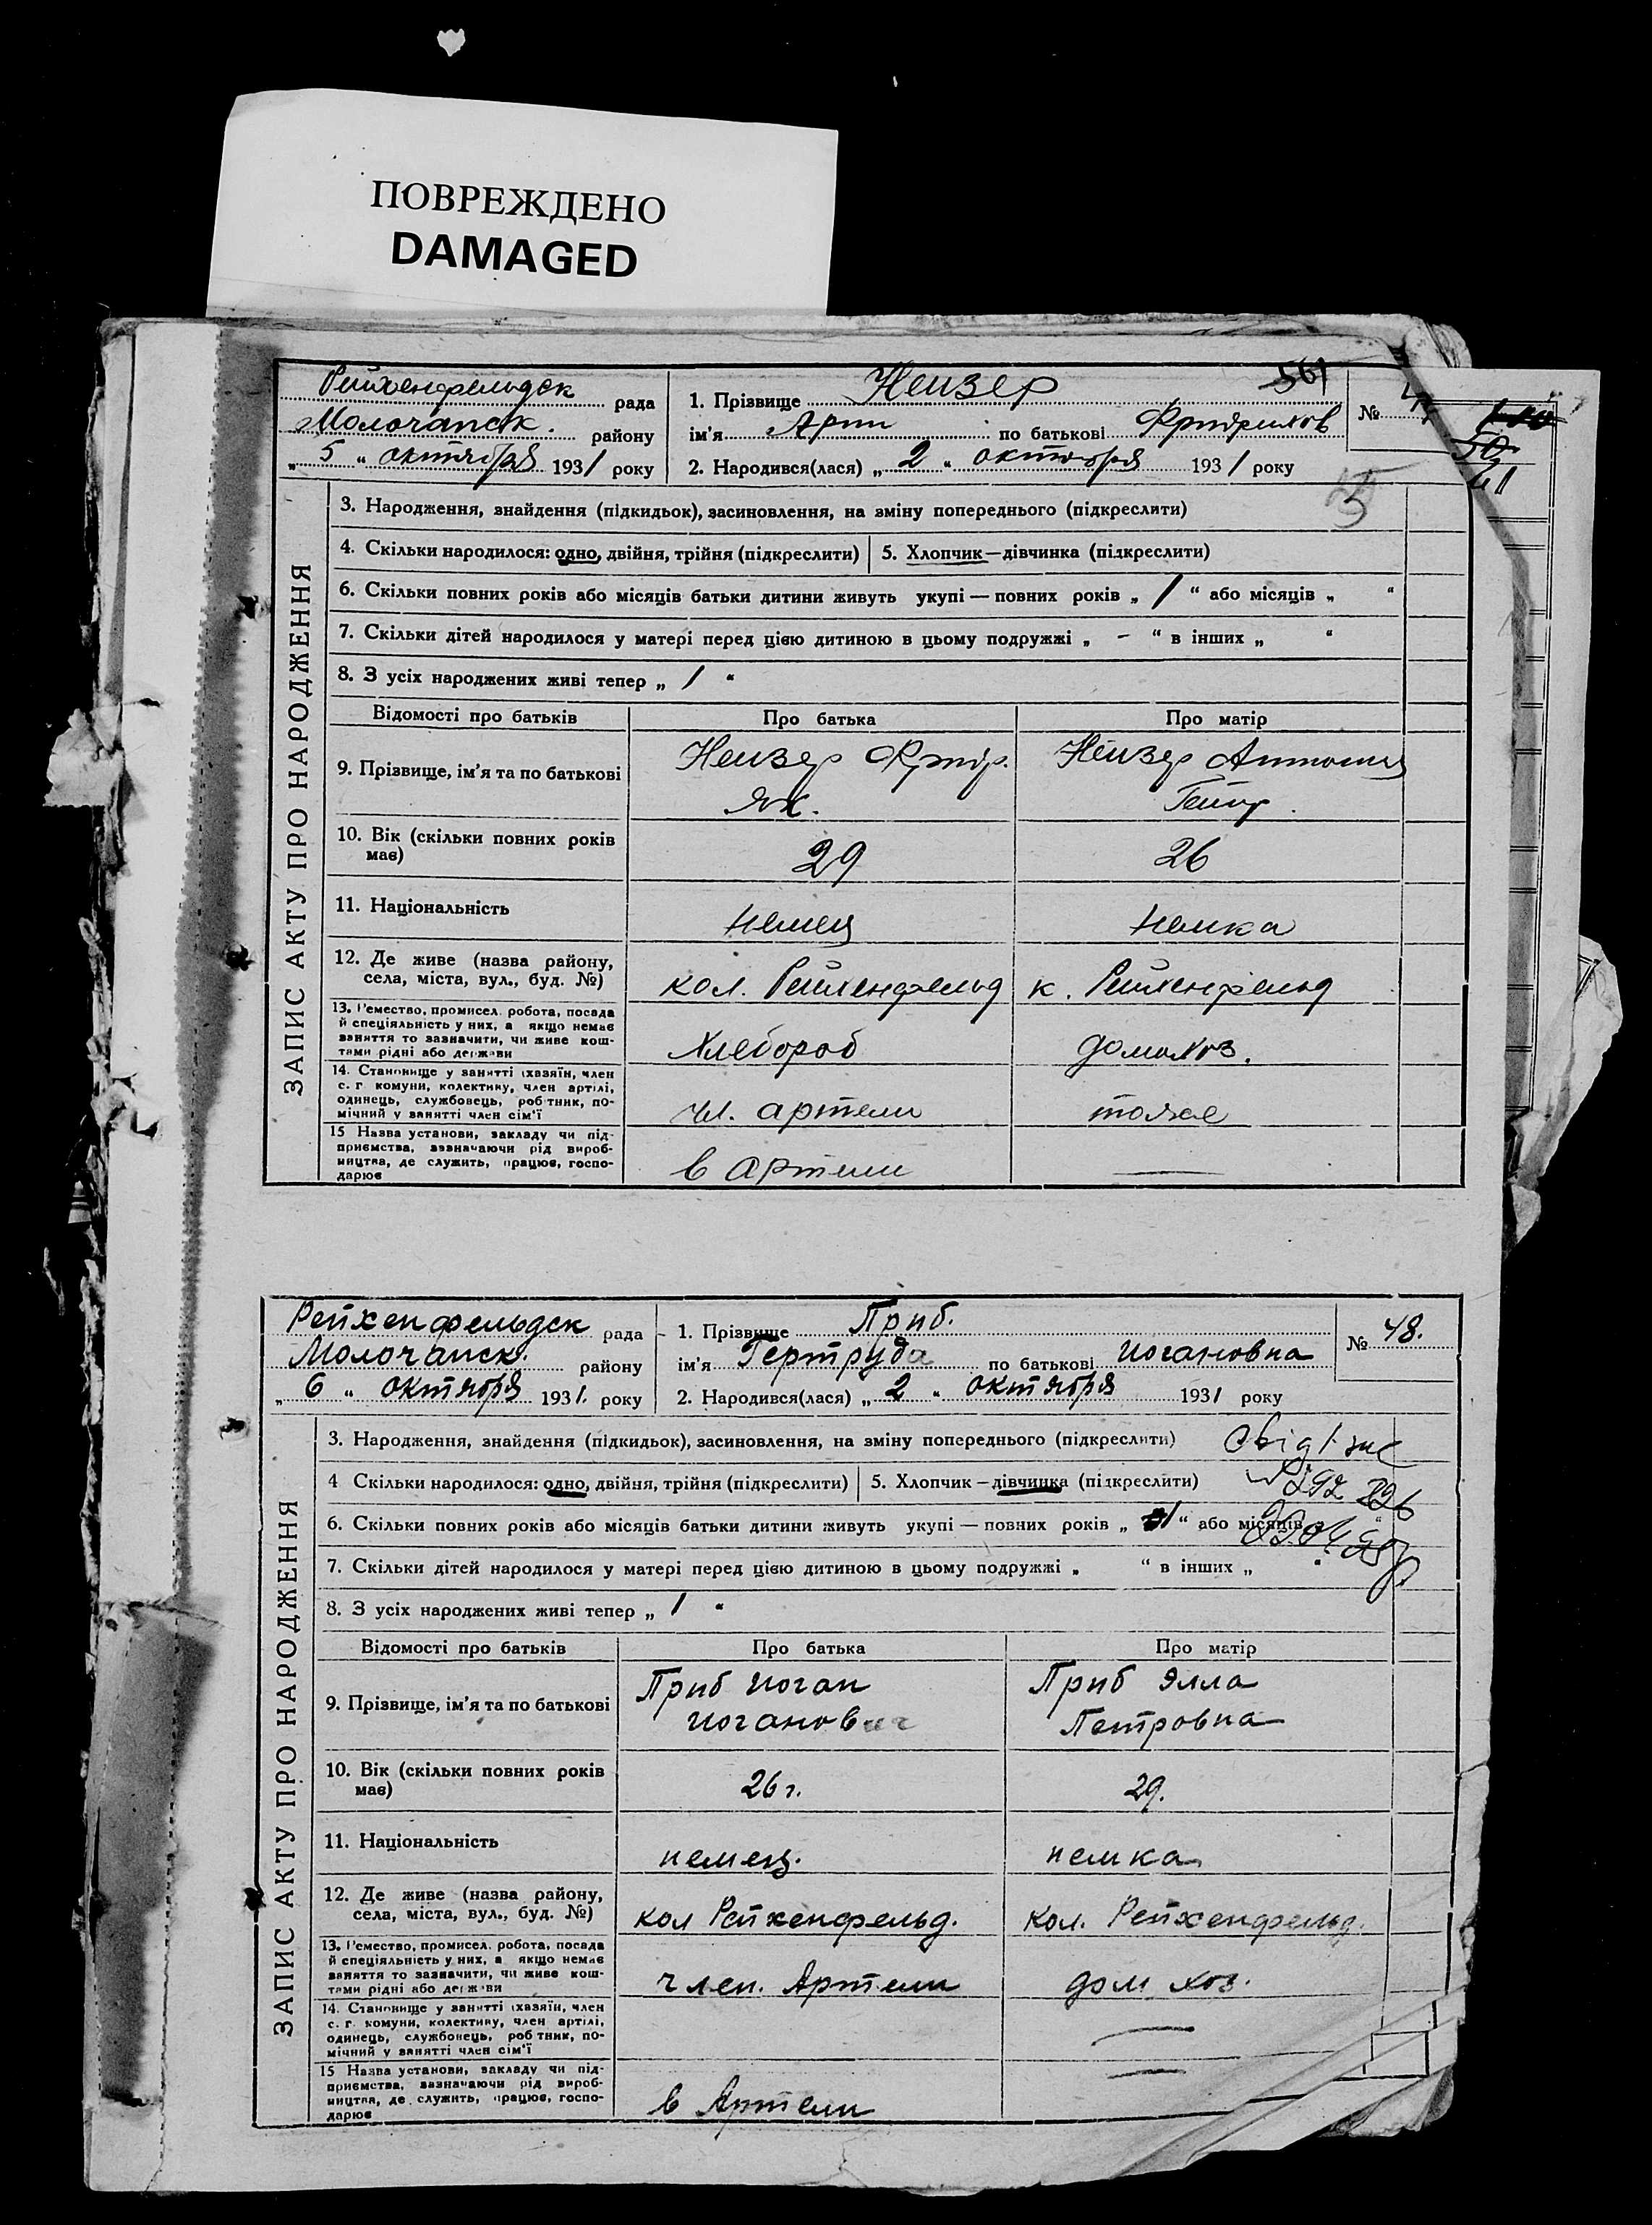 ПОВРЕЖДЕНО
DAMAGED
Рейхенфельдск рада
Молочанск. району
„ 5 “ октября 1931 року
1. Прізвище Нейзер 561
ім'я Арпи по батькові Фридрихов
2. Народився(лася) „ 2 “ октября 1931 року
№
50
ЗАПИС АКТУ ПРО НАРОДЖЕННЯ
3. Народження, знайдення (підкидьок), засиновлення, на зміну попереднього (підкреслити)
4. Скільки народилося: одно, двійня, трійня (підкреслити) 5. Хлопчик—дівчинка (підкреслити)
6. Скільки повних років або місяців батьки дитини живуть укупі — повних років „ 1 “ або місяців „ “
7. Скільки дітей народилося у матері перед цією дитиною в цьому подружжі „ - “ в інших „ “
8. З усіх народжених живі тепер „ 1 “
Відомості про батьків Про батька Про матір
9. Прізвище, ім'я та по батькові Нейзер Фридр. Нейзер
Як.
10. Вік (скільки повних років має) 29 26
11. Національність немец немка
12. Де живе (назва району, села, міста, вул., буд. №) кол. Рейхенфельд к. Рейхенфельд
13. Ремество, промисел, робота, посада й спеціяльність у них, а якщо немає заняття то зазначити, чи живе коштами рідні або держави Хлебороб домохоз.
14. Становище у занятті (хазяїн, член с. г. комуни, колективу, член артілі, одинець, службовець, робтник, помічний у занятті член сім'ї чл. артели тоже
15 Назва установи, закладу чи підприємства, зазначаючи рід виробництва, де служить, працює, господарює в Артели
Рейхенфельдск рада
Молочанск. району
„ 6 “ октября 1931. року
1. Прізвище Приб.
ім'я Гертруда по батькові Иогановна
2. Народився(лася) „ 2 “ октября 1931 року
№ 48.
ЗАПИС АКТУ ПРО НАРОДЖЕННЯ
3. Народження, знайдення (підкидьок), засиновлення, на зміну попереднього (підкреслити)
4 Скільки народилося: одно, двійня, трійня (підкреслити) 5. Хлопчик—дівчинка (підкреслити)
6. Скільки повних років або місяців батьки дитини живуть укупі — повних років „ 1 “ або місяців „
7. Скільки дітей народилося у матері перед цією дитиною в цьому подружжі „ “ в інших „ “
8. З усіх народжених живі тепер „ 1 “
Відомості про батьків Про батька Про матір
9. Прізвище, ім'я та по батькові Приб Иоган Приб Элла
Иоганович Петровна
10. Вік (скільки повних років має) 26 г. 29.
11. Національність немец. немка
12. Де живе (назва району, села, міста, вул., буд. №) кол Рейхенфельд. кол. Рейхенфельд.
13. Ремество, промисел, робота, посада й спеціяльність у них, а якщо немає заняття то зазначити, чи живе коштами рідні або держави член. Артели дом хоз.
14. Становище у занятті (хазяїн, член с. г. комуни, колективу, член артілі, одинець, службовець, робтник, помічний у занятті член сім'ї
15 Назва установи, закладу чи підприємства, зазначаючи рід виробництва, де служить, працює, господарює в Артели